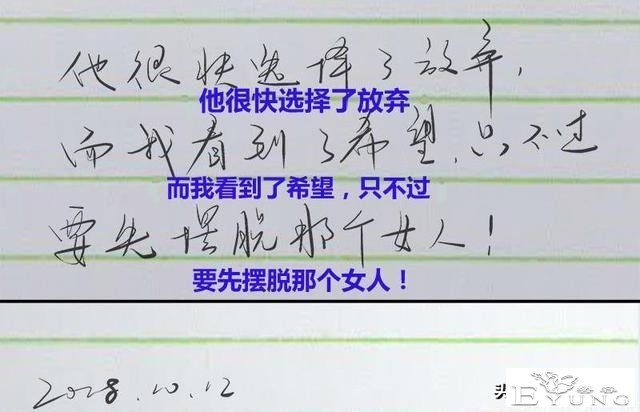 他很快选择了放弃,
他很快选择了放弃
而我看到了希望,只不过
而我看到了希望，只不过
要先摆脱那个女人!
要先摆脱那个女人！
2018.10.12
EYUNG